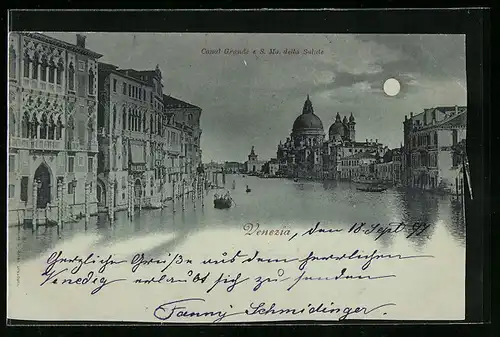 Canal Grande e S. Ma. della Salute
Venezia, den 18 Sept 97
Herzliche Grüsse aus dem herrlichen
Venedig erlaubt sich zu senden
Fanny Schmidinger